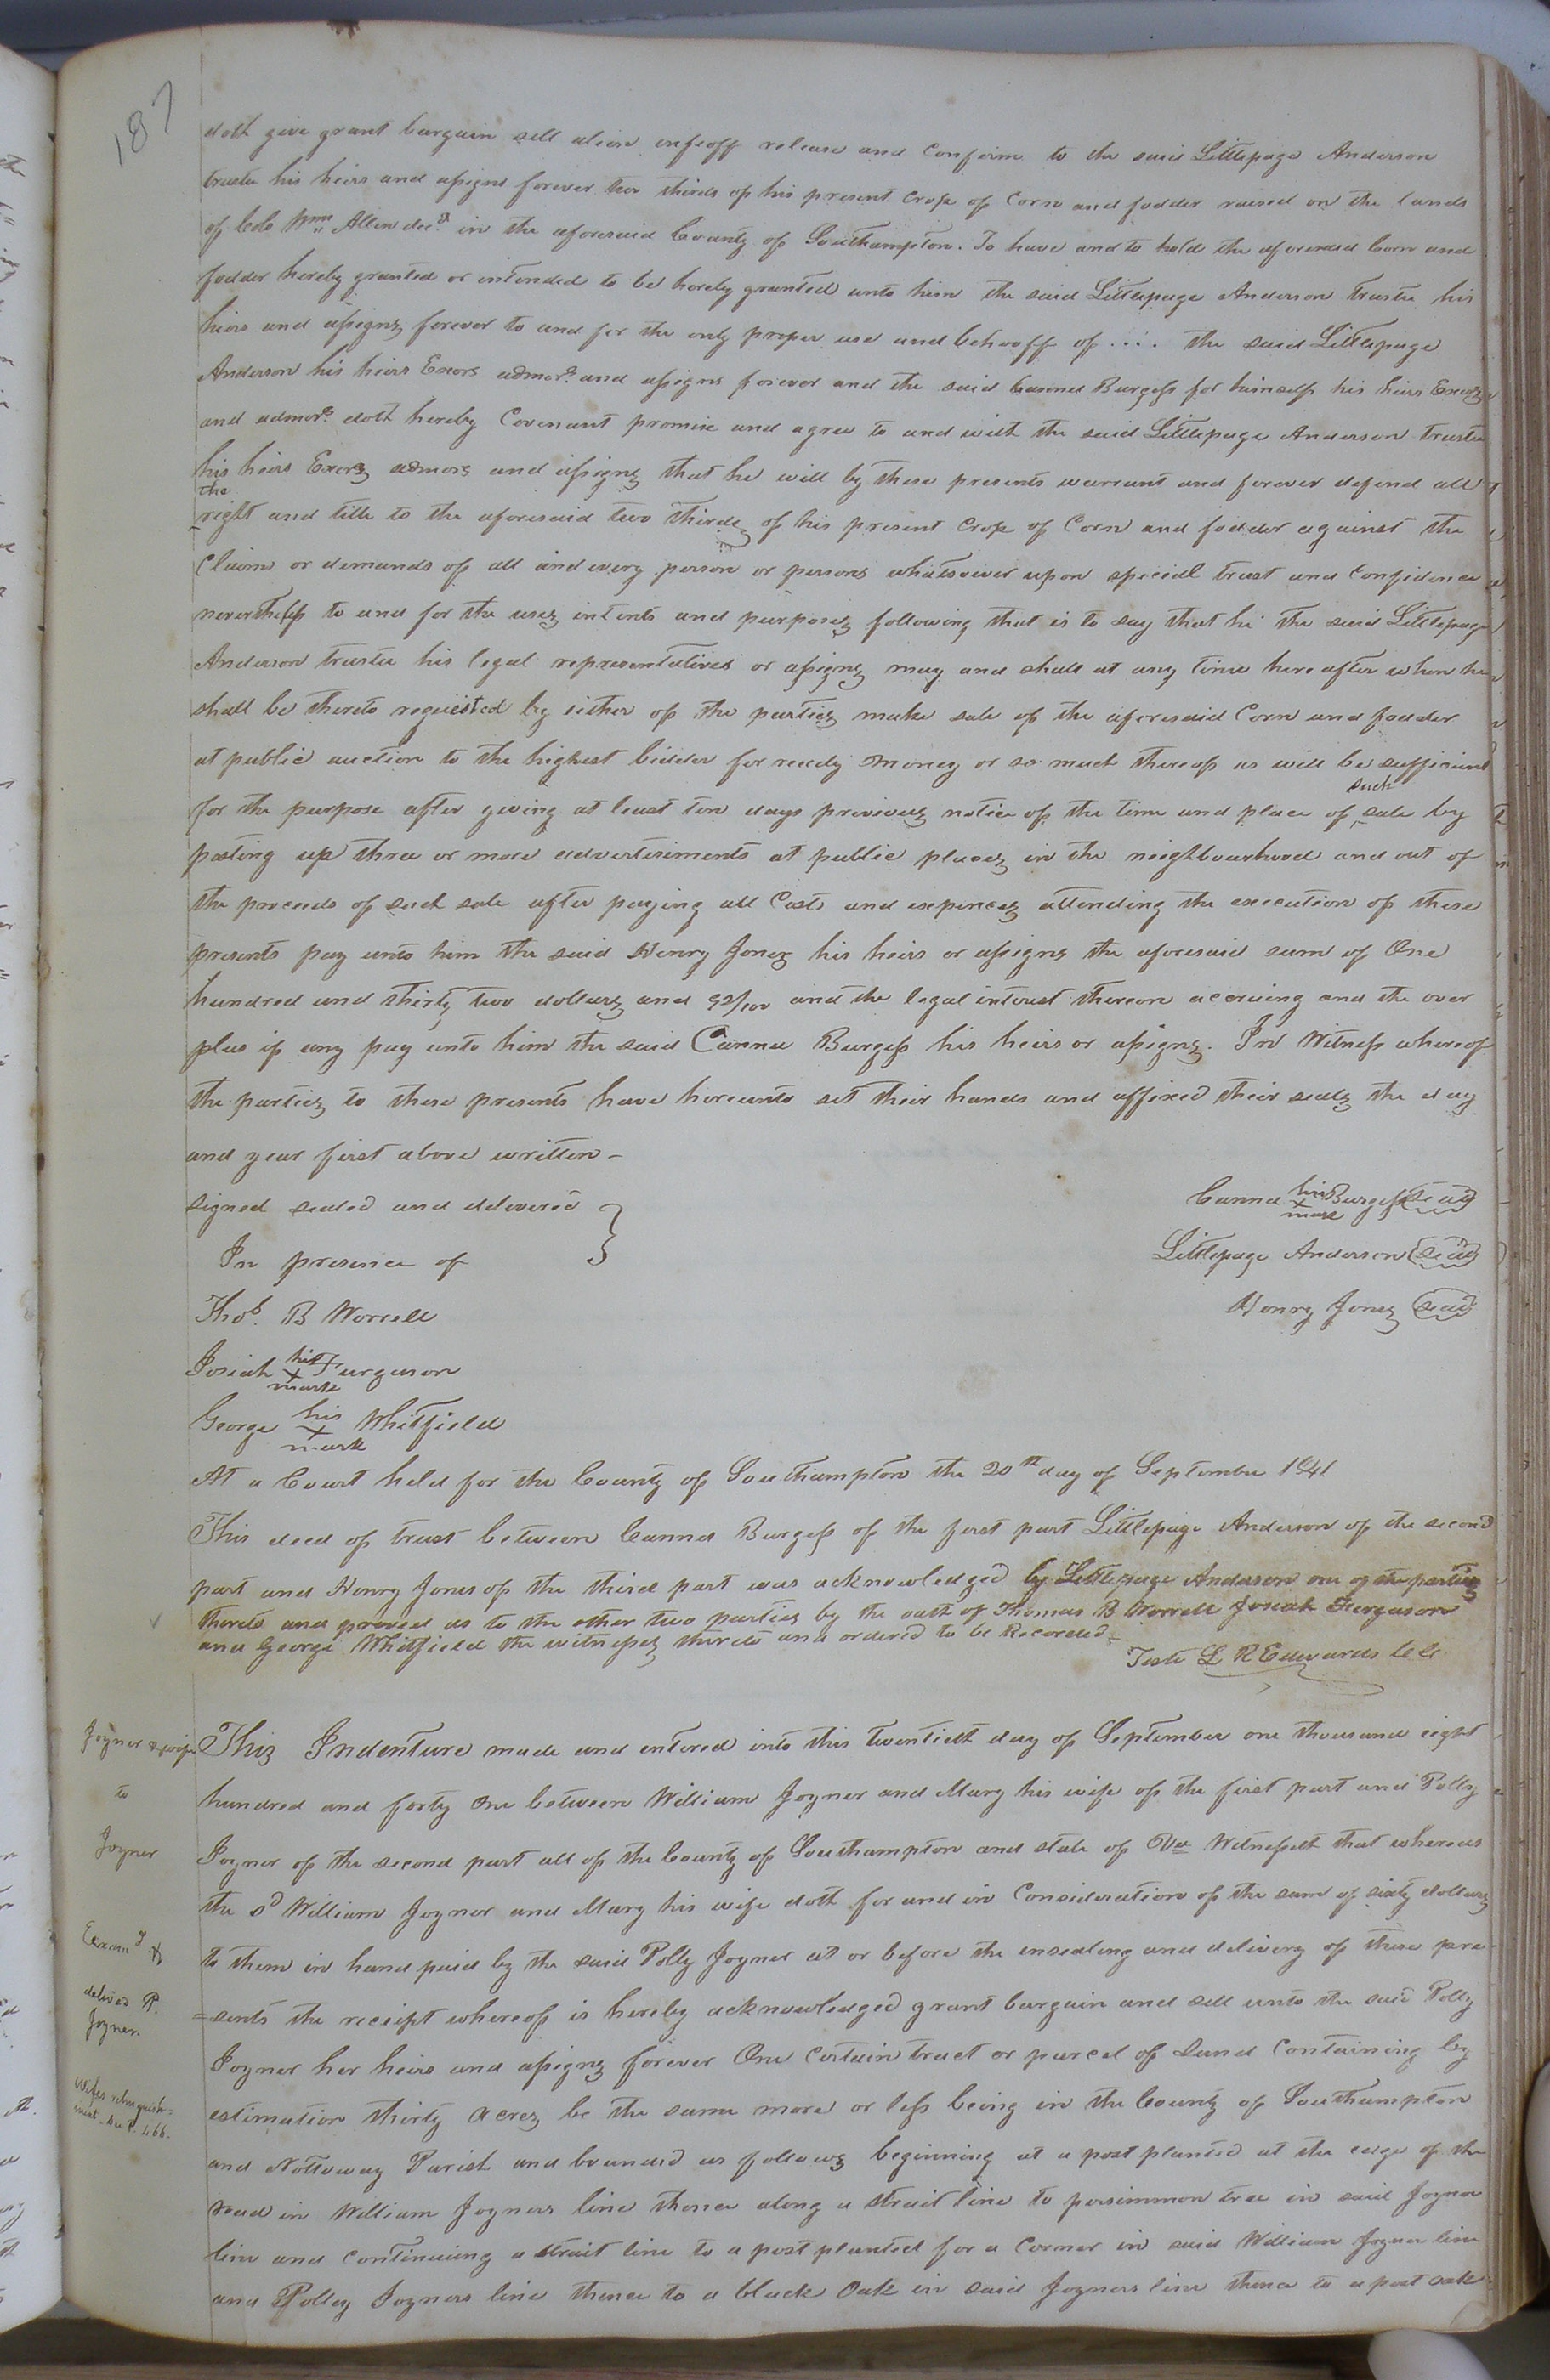 187
doth give grant bargain sell alien enfeoff release and confirm to the said Littlepage Anderson
trustee his heirs and assigns forever two thirds of his present crop of Corn and fodder raised on the lands
of Colo Wm Allen decd in the aforesaid County of Southampton. To have and to hold the aforesaid Corn and
fodder hereby granted or intended to be hereby granted unto him the said Littlepage Anderson trustee his
heirs and assigns forever to and for the only proper use and behooff of .... the said Littlepage
Anderson his heirs Exors admors and assigns forever and the said Burgess for himself his heirs Exors
and admors doth hereby Covenant promise and agree to and with the said Littlepage Anderson trustee
his heirs Exors admors and assigns that he will by these presents warrant and forever defend all
the
right and title to the aforesaid two thirds of his present crop of Corn and fodder against the
Claims or demands of all and every person or persons whatsoever upon special trust and confidence
nevertheless to and for the uses intents and purposes following that is to say that he the said Littlepage
Anderson trustee his legal representatives or assigns may and shall at any time hereafter when he
shall be thereto requested by either of the parties make sale of the aforesaid Corn and fodder
at public auction to the highest bidder for ready money or so much thereof as will be sufficient
such
for the purpose after giving at least ten days previous notice of the time and place of sale by
posting up three or more advertisiments at public places in the neighbourhood and out of
the proceeds of such sale after paying all Costs and expences attending the execution of these
presents pay unto him the said Henry Jones his heirs or assigns the aforesaid sum of One
hundred and thirty two dollars and 92/100 and the legal interest thereon accruing and the over
plus if any pay unto him the said Canna Burgess his heirs or assigns. In Witness whereof
the parties to these presents have hereunto set their hands and affixed their seals the day
and year first above written –
signed sealed and delivered }
In presence of
Canna his x mark Burgess (seal)
Littlepage Anderson (seal)
Henry Jones (seal)
Thos. B Worrell
Josiah his x mark Ferguson
George his x mark Whitfield
At a Court held for the County of Southampton the 20th day of September 1841
This deed of trust between Canna Burgess of the first part Littlepage Anderson of the second
part and Henry Jones of the third part was acknowledged by Littlepage Anderson one of the parties
thereto and proved as to the other two parties by the oath of Thomas B Worrell Josiah Ferguson
and George Whitfield the witnesses thereto and ordered to be Recorded –
Teste L R Edwards CC
Joyner & wife
to
Joyner
Examd &
delived P.
Joyner.
Wifes relinquish=
ment – See P. 466.
This Indenture made and entered into this twentieth day of September one thousand eight
hundred and forty one between William Joyner and Mary his wife of the first part and Polly
Joyner of the second part all of the County of Southampton and state of Va Witnesseth that whereas
the sd William Joyner and Mary his wife doth for and in Consideration of the sum of sixty dollars
to them in hand paid by the said Polly Joyner at or before the ensealing and delivery of these pre
=sents the receipt whereof is hereby acknowledged grant bargain and sell unto the said Polly
Joyner her heirs and assigns forever One certain tract or parcel of Land Containing by
estimation thirty acres be the same more or less being in the County of Southampton
and Nottoway Parish and bounded as follows beginning at a post planted at the edge of the
road in William Joyners line thence along a strait line to persimmon tree in said Joyner
line and continuing a strait line to a post planted for a Corner in said William Joyner line
and Polley Joyners line thence to a black Oak in said Joyners line thence to a post oak